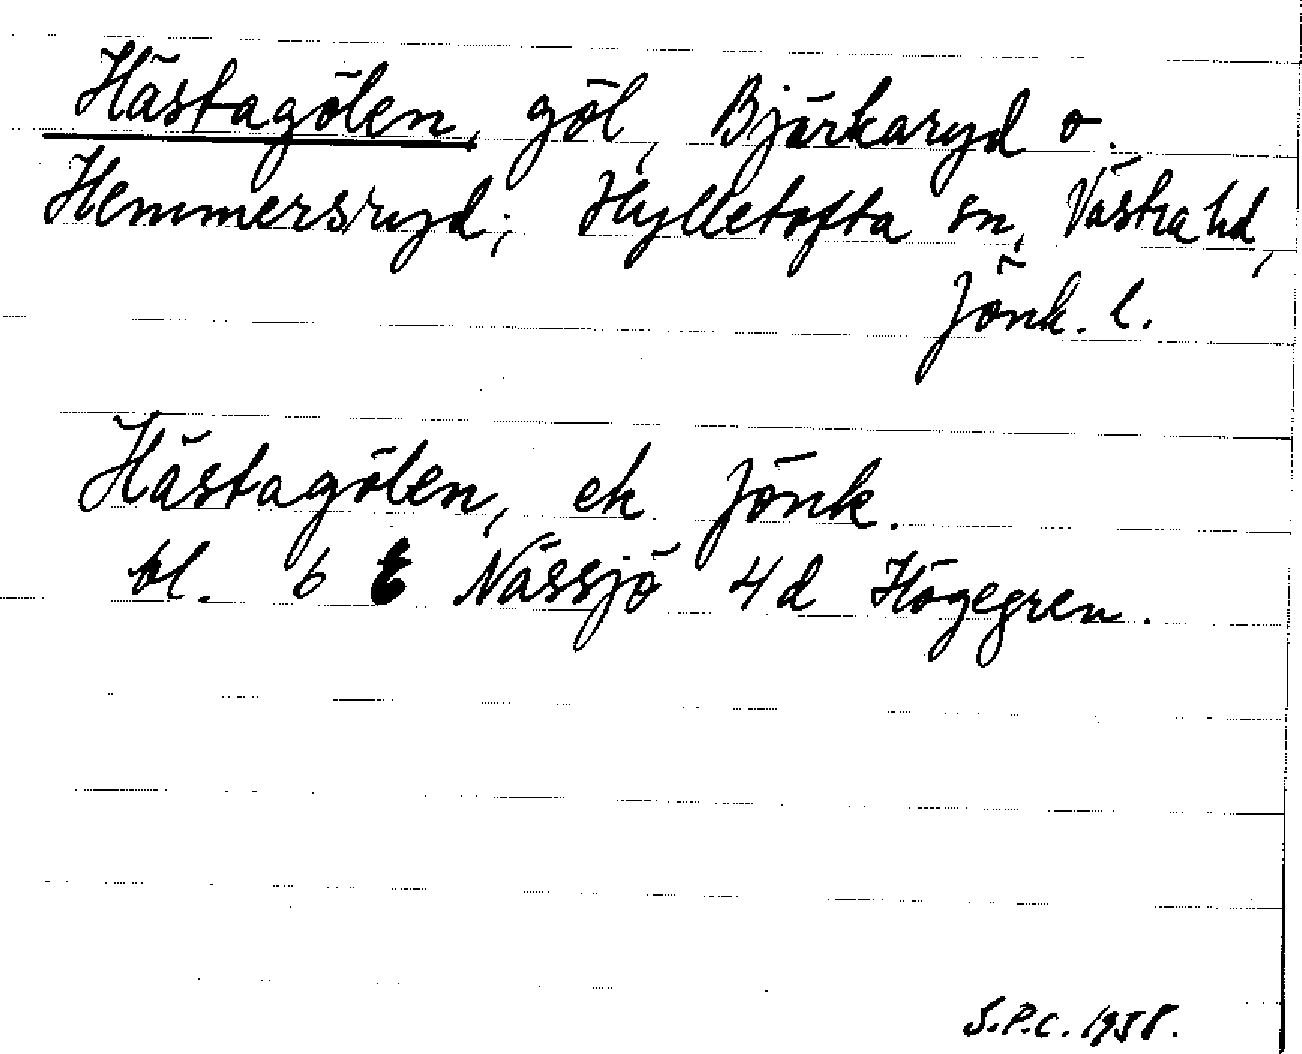 Hästagölen, göl, Bjärkaryd o.
Hemmersryd; Hylletofta sn, Västra hd,
Jönk. l.
Hästagölen, ek Jönk.
bl. 6 E Nässjö 4d Högegren.
S.P.C. 1958.